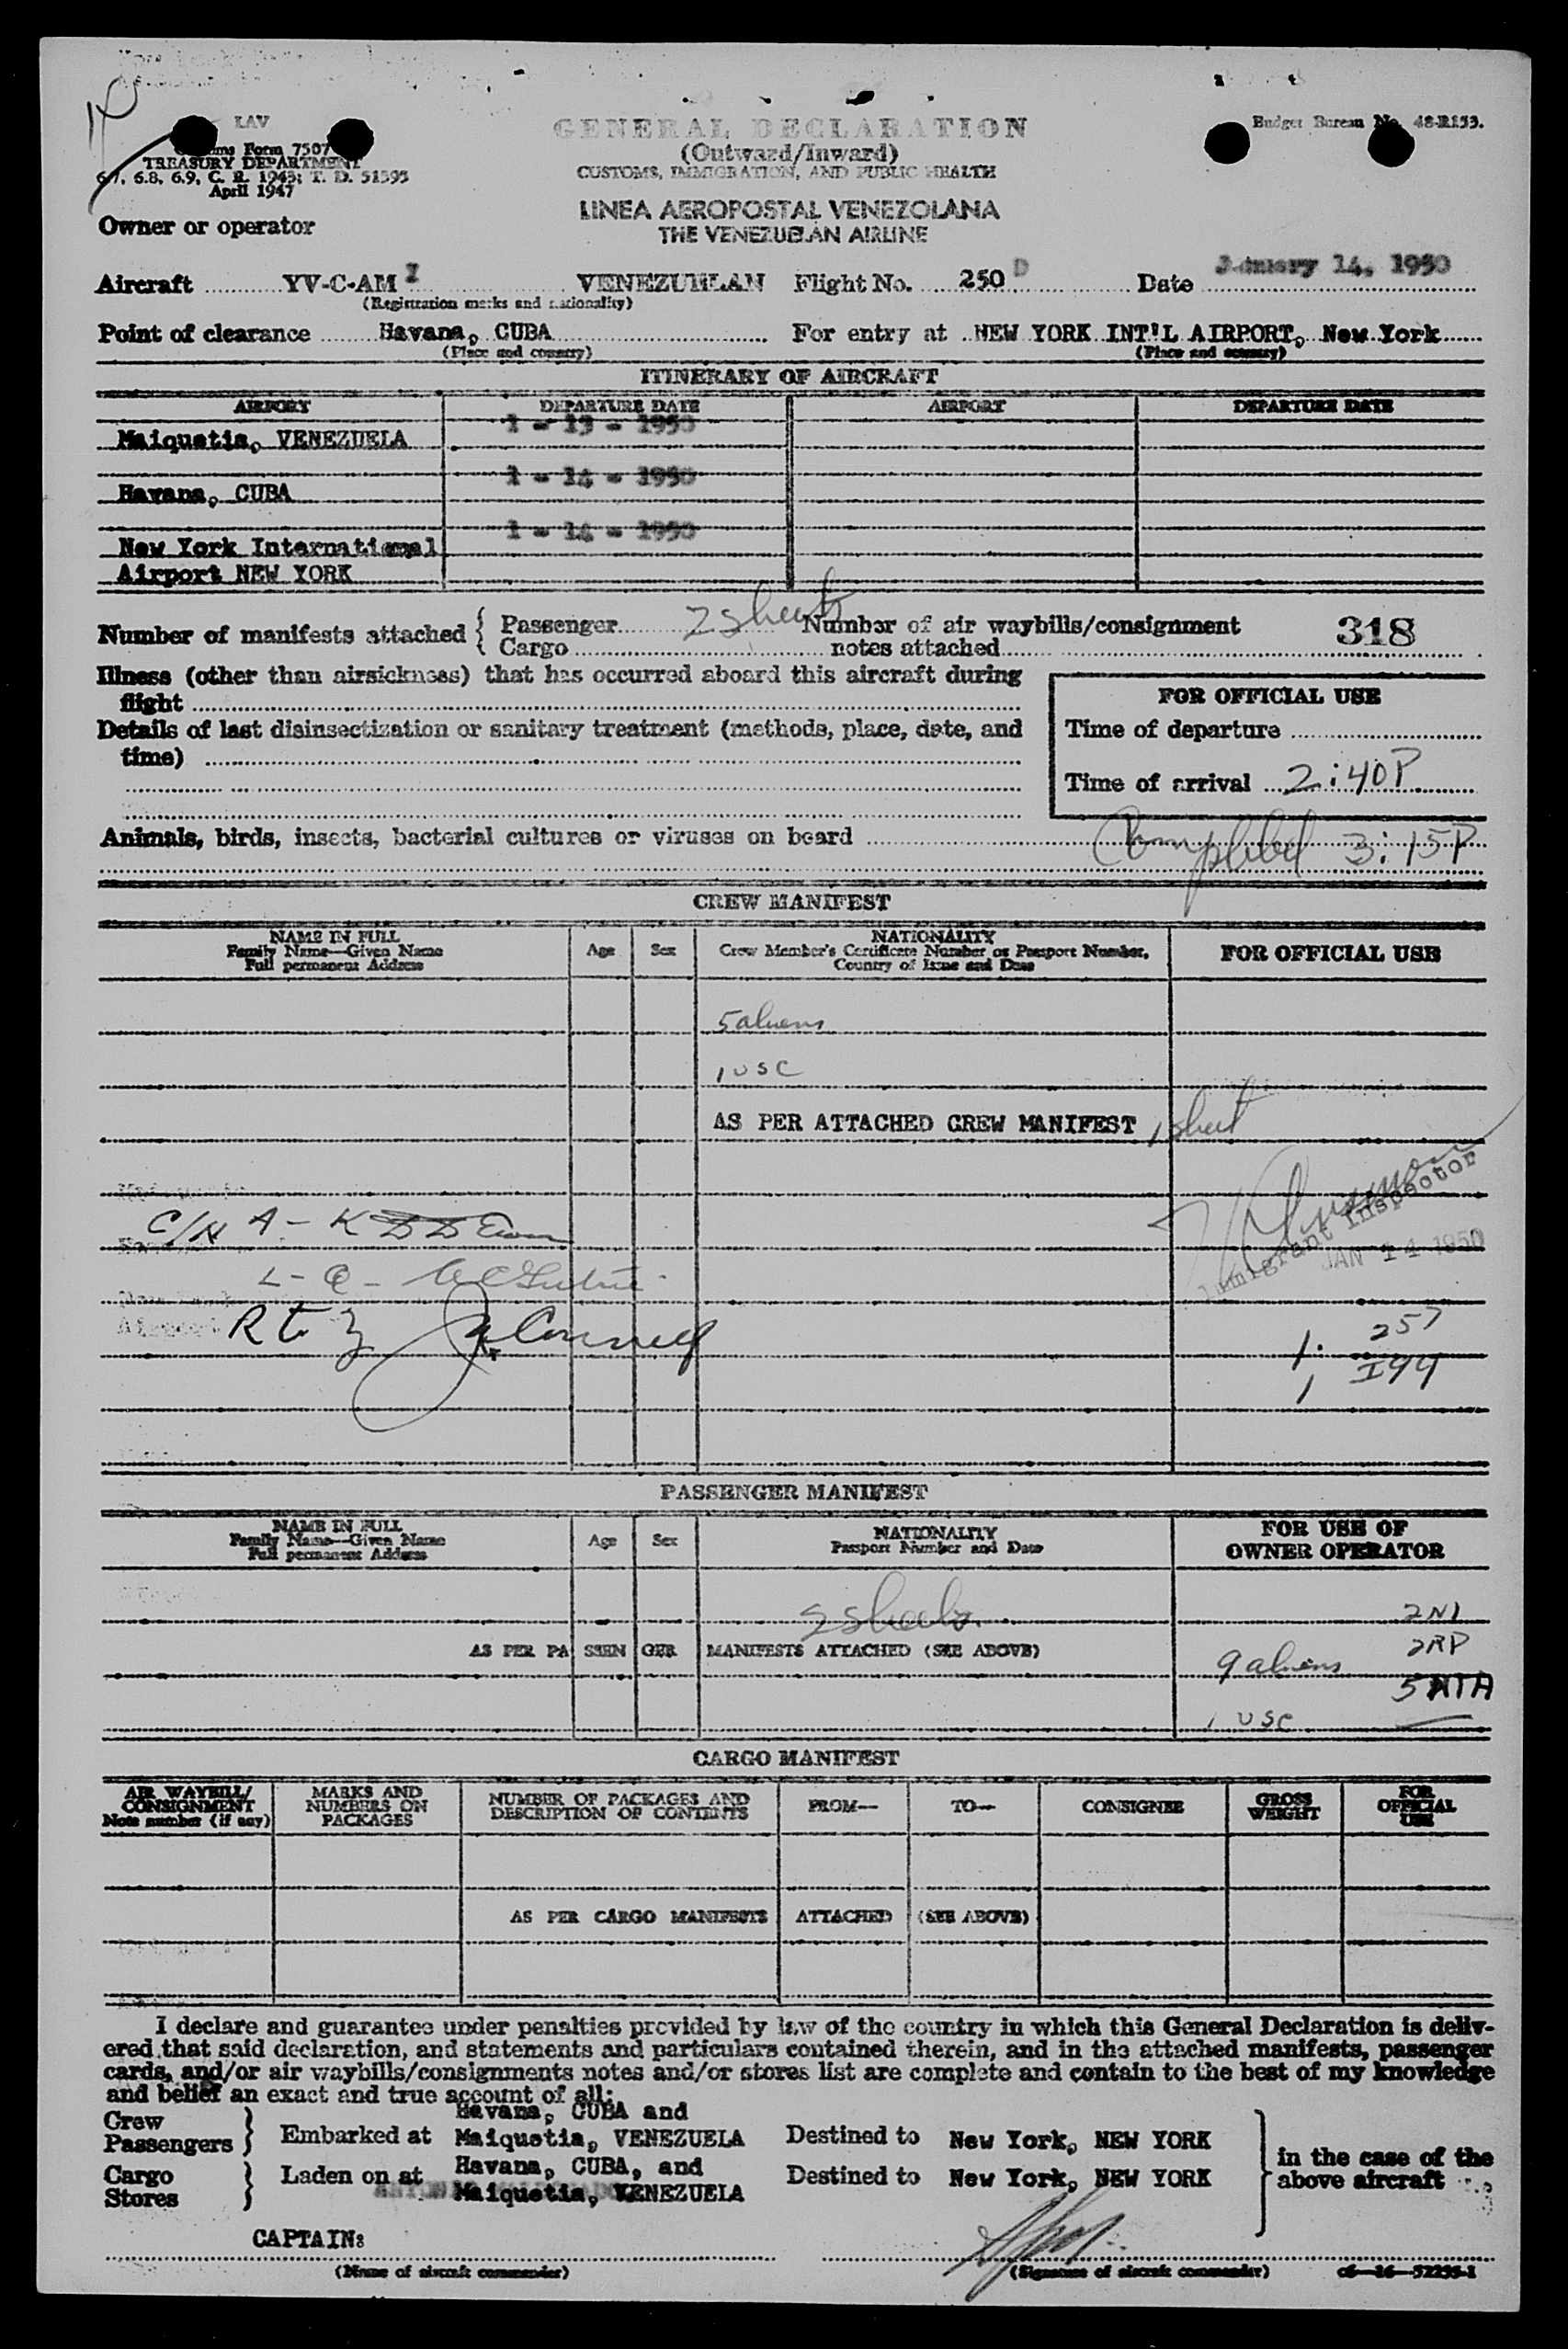 LAV
Customs Form 7507
TREASURY DEPARTMENT
6.7, 6.8, 6.9, C. R. 1943; T. D. 51595
April 1947
GENERAL DECLARATION
(Outward/Inward)
CUSTOMS, IMMIGRATION, AND PUBLIC HEALTH
Budget Bureau No. 48-R133.
LINEA AEROPOSTAL VENEZOLANA
THE VENEZUELAN AIRLINE
Owner or operator
Aircraft YV-C-AM VENEZUELAN Flight No. 250 D Date January 14, 1950
(Registration marks and nationality)
Point of clearance Havana, CUBA For entry at NEW YORK INT'L AIRPORT, New York
(Place and country) (Place and country)
ITINERARY OF AIRCRAFT
AIRPORT DEPARTURE DATE AIRPORT DEPARTURE DATE
Maiquetia, VENEZUELA 1 - 13 - 1950
Havana, CUBA 1 - 14 - 1950
New York International 1 - 14 - 1950
Airport NEW YORK
Number of manifests attached { Passenger 2 sheets Number of air waybills/consignment 318
Cargo notes attached
Illness (other than airsickness) that has occurred aboard this aircraft during
flight
Details of last disinsectization or sanitary treatment (methods, place, date, and
time)
FOR OFFICIAL USE
Time of departure
Time of arrival 2:40P
Animals, birds, insects, bacterial cultures or viruses on board Completed 3:15P
CREW MANIFEST
NAME IN FULL
Family Name—Given Name
Full permanent Address
Age Sex
NATIONALITY
Crew Member's Certificate Number or Passport Number,
Country of Issue and Date
FOR OFFICIAL USE
5 aliens
1 USC
AS PER ATTACHED CREW MANIFEST 1 sheet
Immigrant Inspector
JAN 14 1950
C/N A - K
L - Q -
R to Z
1. 257
1 I94
PASSENGER MANIFEST
NAME IN FULL
Family Name—Given Name
Full permanent Address
Age Sex
NATIONALITY
Passport Number and Date
FOR USE OF
OWNER OPERATOR
2 sheets 2NI
AS PER PASSENGER MANIFESTS ATTACHED (SEE ABOVE) 9 aliens 2RP
1 USC
CARGO MANIFEST
AIR WAYBILL/
CONSIGNMENT
Note number (if any)
MARKS AND
NUMBERS ON
PACKAGES
NUMBER OF PACKAGES AND
DESCRIPTION OF CONTENTS
FROM— TO— CONSIGNEE
GROSS
WEIGHT
FOR
OFFICIAL
USE
AS PER CARGO MANIFESTS ATTACHED (SEE ABOVE)
I declare and guarantee under penalties provided by law of the country in which this General Declaration is deliv-
ered that said declaration, and statements and particulars contained therein, and in the attached manifests, passenger
cards, and/or air waybills/consignments notes and/or stores list are complete and contain to the best of my knowledge
and belief an exact and true account of all:
Havana, CUBA and
Crew
Passengers } Embarked at Maiquetia, VENEZUELA Destined to New York, NEW YORK
Havana, CUBA, and
Cargo
Stores } Laden on at Maiquetia, VENEZUELA Destined to New York, NEW YORK
} in the case of the
above aircraft
CAPTAIN:
(Name of aircraft commander) (Signature of aircraft commander) c6—16—52295-1